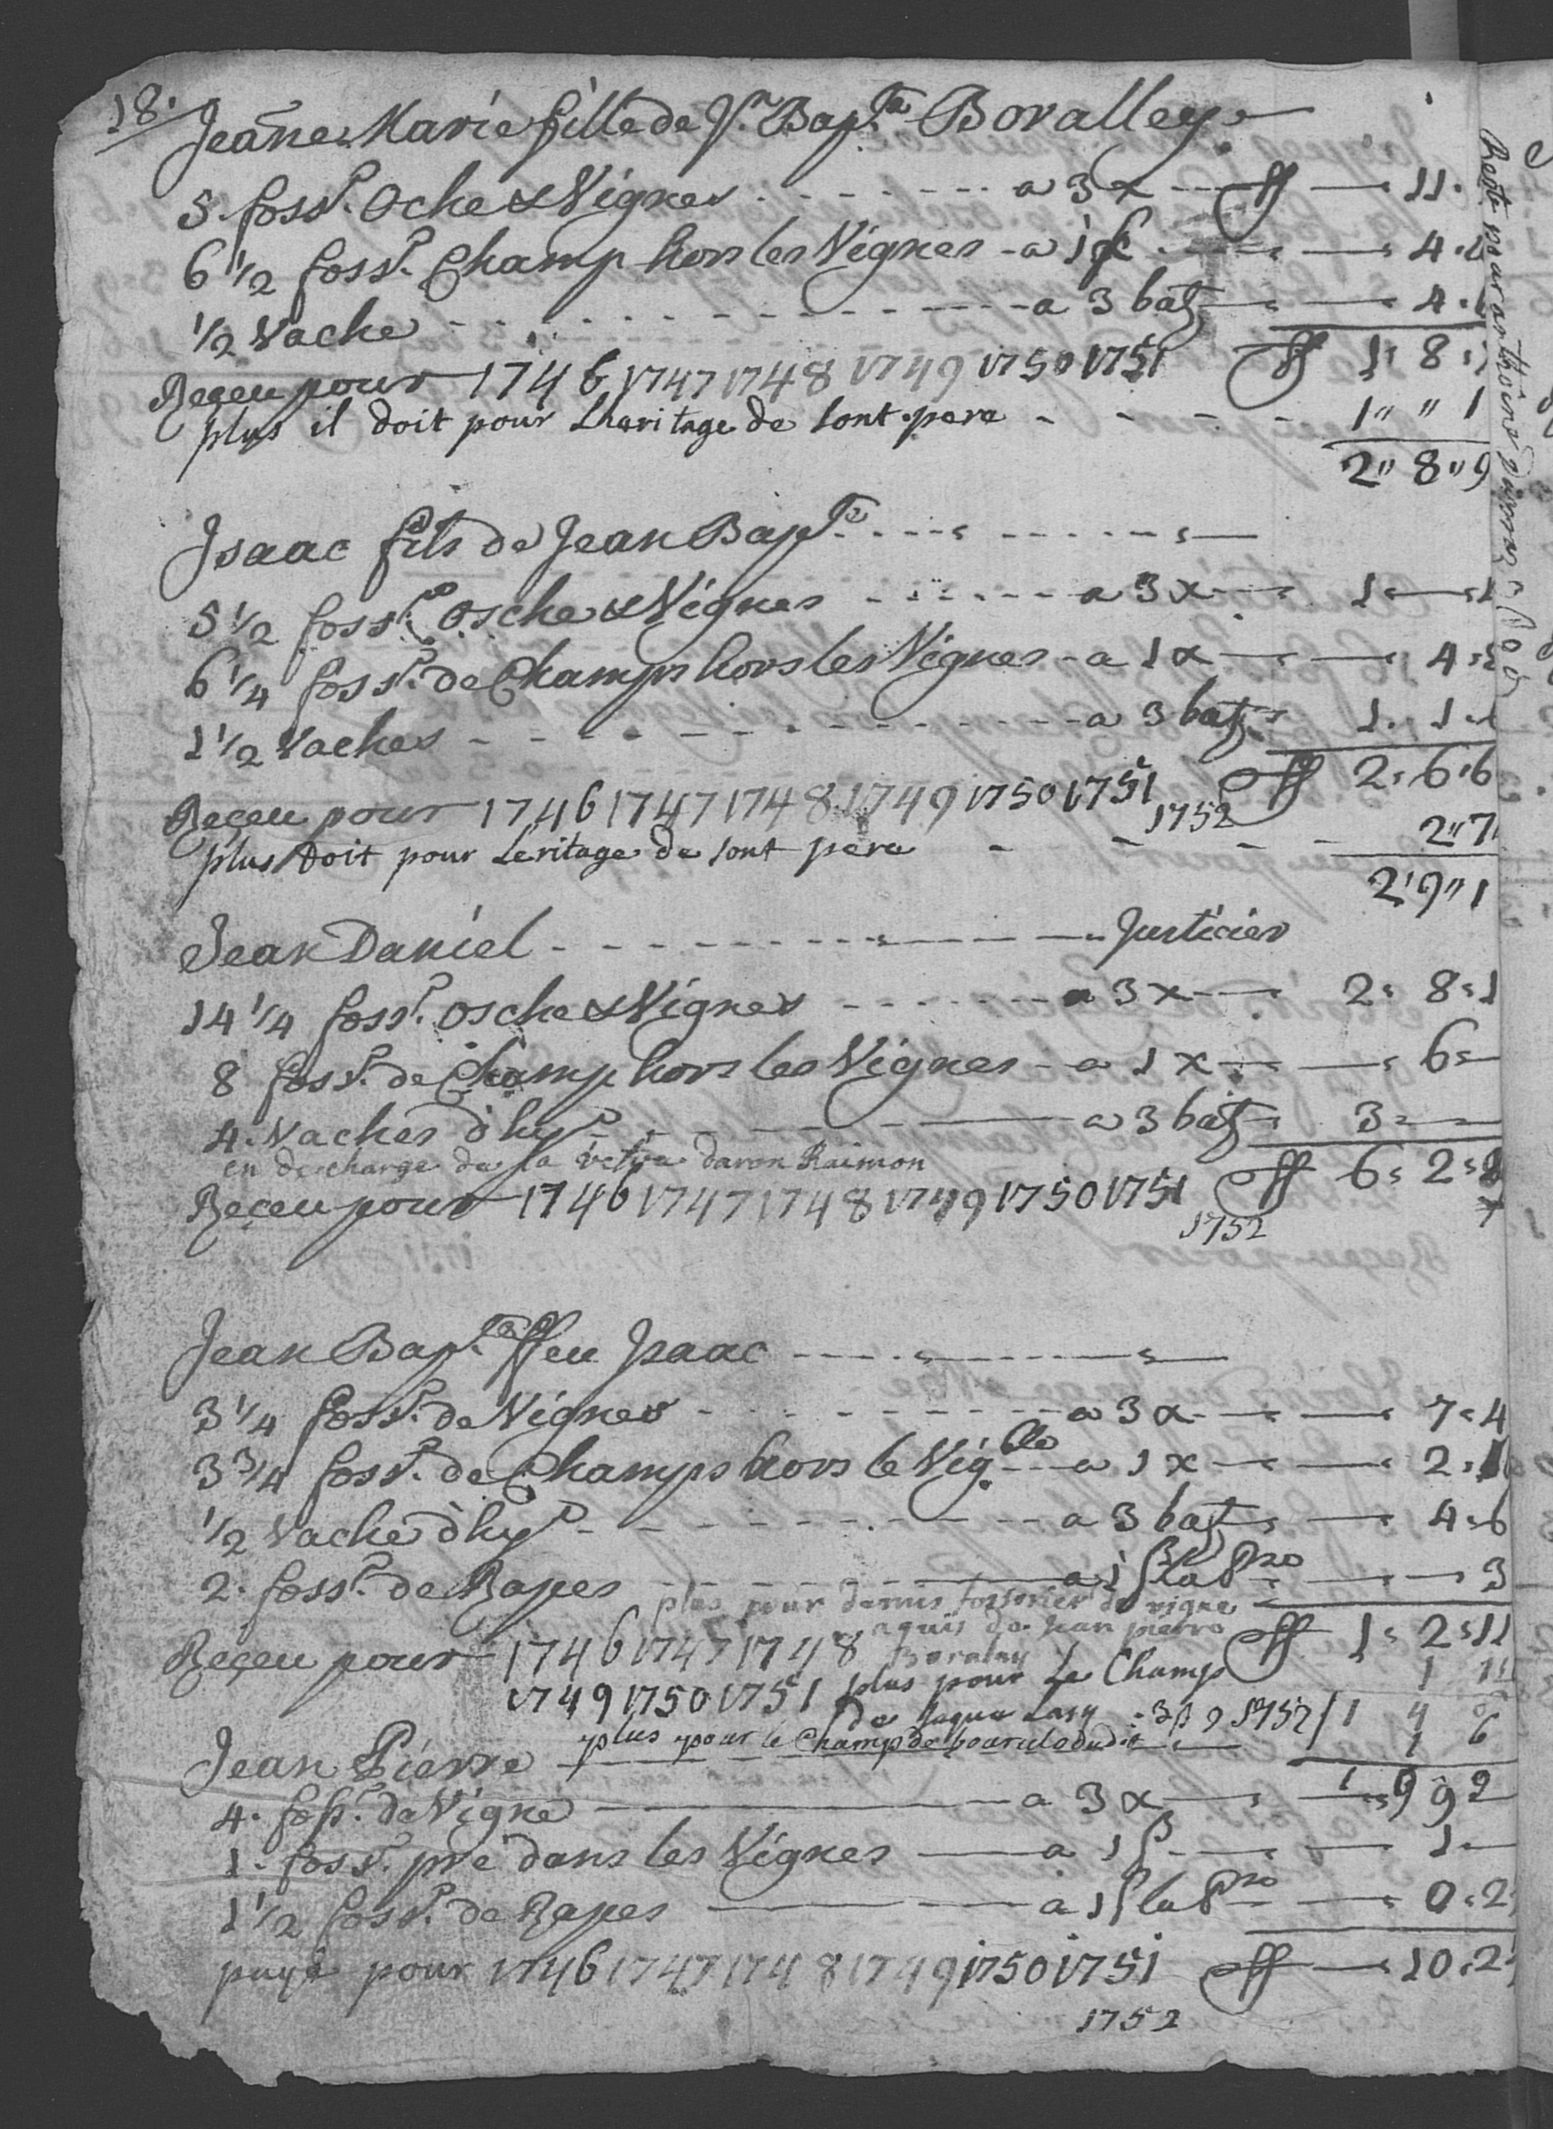 18.
Jeanne Marie fille de Jn. Bapte. Bovalley
5. fossr. Oche & Vignes - - - a 3 x — ff — 11.
6 1/2 fossr. Champ hors les Vignes - a 1 x — 4.
1/2 Vache - - - a 3 batz — 4.
Reçeu pour 1746 1747 1748 1749 1750 1751 ff 1. 8.
plus il doit pour Lheritage de sont pere - - - 1 " " 1
2 " 8 " 9
Isaac fils de Jean Bapte.
5 1/2 fossr. Osche & Vignes - - - a 3 x — 1 —
6 1/4 fossr. de Champs hors les Vignes - a 1 x — 4.
1 1/2 Vaches - - - a 3 batz 1. 1.
Reçeu pour 1746 1747 1748 1749 1750 1751 ff 2. 6. 6
1752
plus doit pour Leritage de sont pere - - - 2 " 7
2 ' 9 " 1
Jean Daniel - - - Justicier
14 1/4 fossr. Osche & Vignes - - - a 3 x — 2. 8. 1
8 fossr. de Champ hors les Vignes - a 1 x — 6 —
4. Vaches d'hyp - - - a 3 batz 3 —
en descharge de la veuve daron Raimon
Reçeu pour 1746 1747 1748 1749 1750 1751 ff 6. 2.
1752
Jean Bapte. ffeu Isaac
3 1/4 fossr. de Vignes - - - a 3 x — 7. 4
3 3/4 fossr. de Champs hors le Vigble - a 1 x — 2.
1/2 Vache d'hyp - - - a 3 batz — 4. 6
2. fossr. de Rapes - - - a 1 ß la pze — 3
plus pour demis fossorier de vigne
aquis de Jean pierre
Boraley
Reçeu pour 1746 1747 1748 ff 1. 2. 11
1749 1750 1751 plus pour Le Champ 1 1
de Jaque : 3 ß 9 1752 / 1 4 6
plus pour le Champ de dudit 1 6
Jean Pierre
1 9 2
4. foss. de Vigne — a 3 x — 9
1. fossr. pré dans les Vignes — a 1 ß — 1. —
1 1/2 fossr. de Rapes — a 1 ß la pze — 0. 2
payé pour 1746 1747 1748 1749 1750 1751 ff — 10. 2
1752